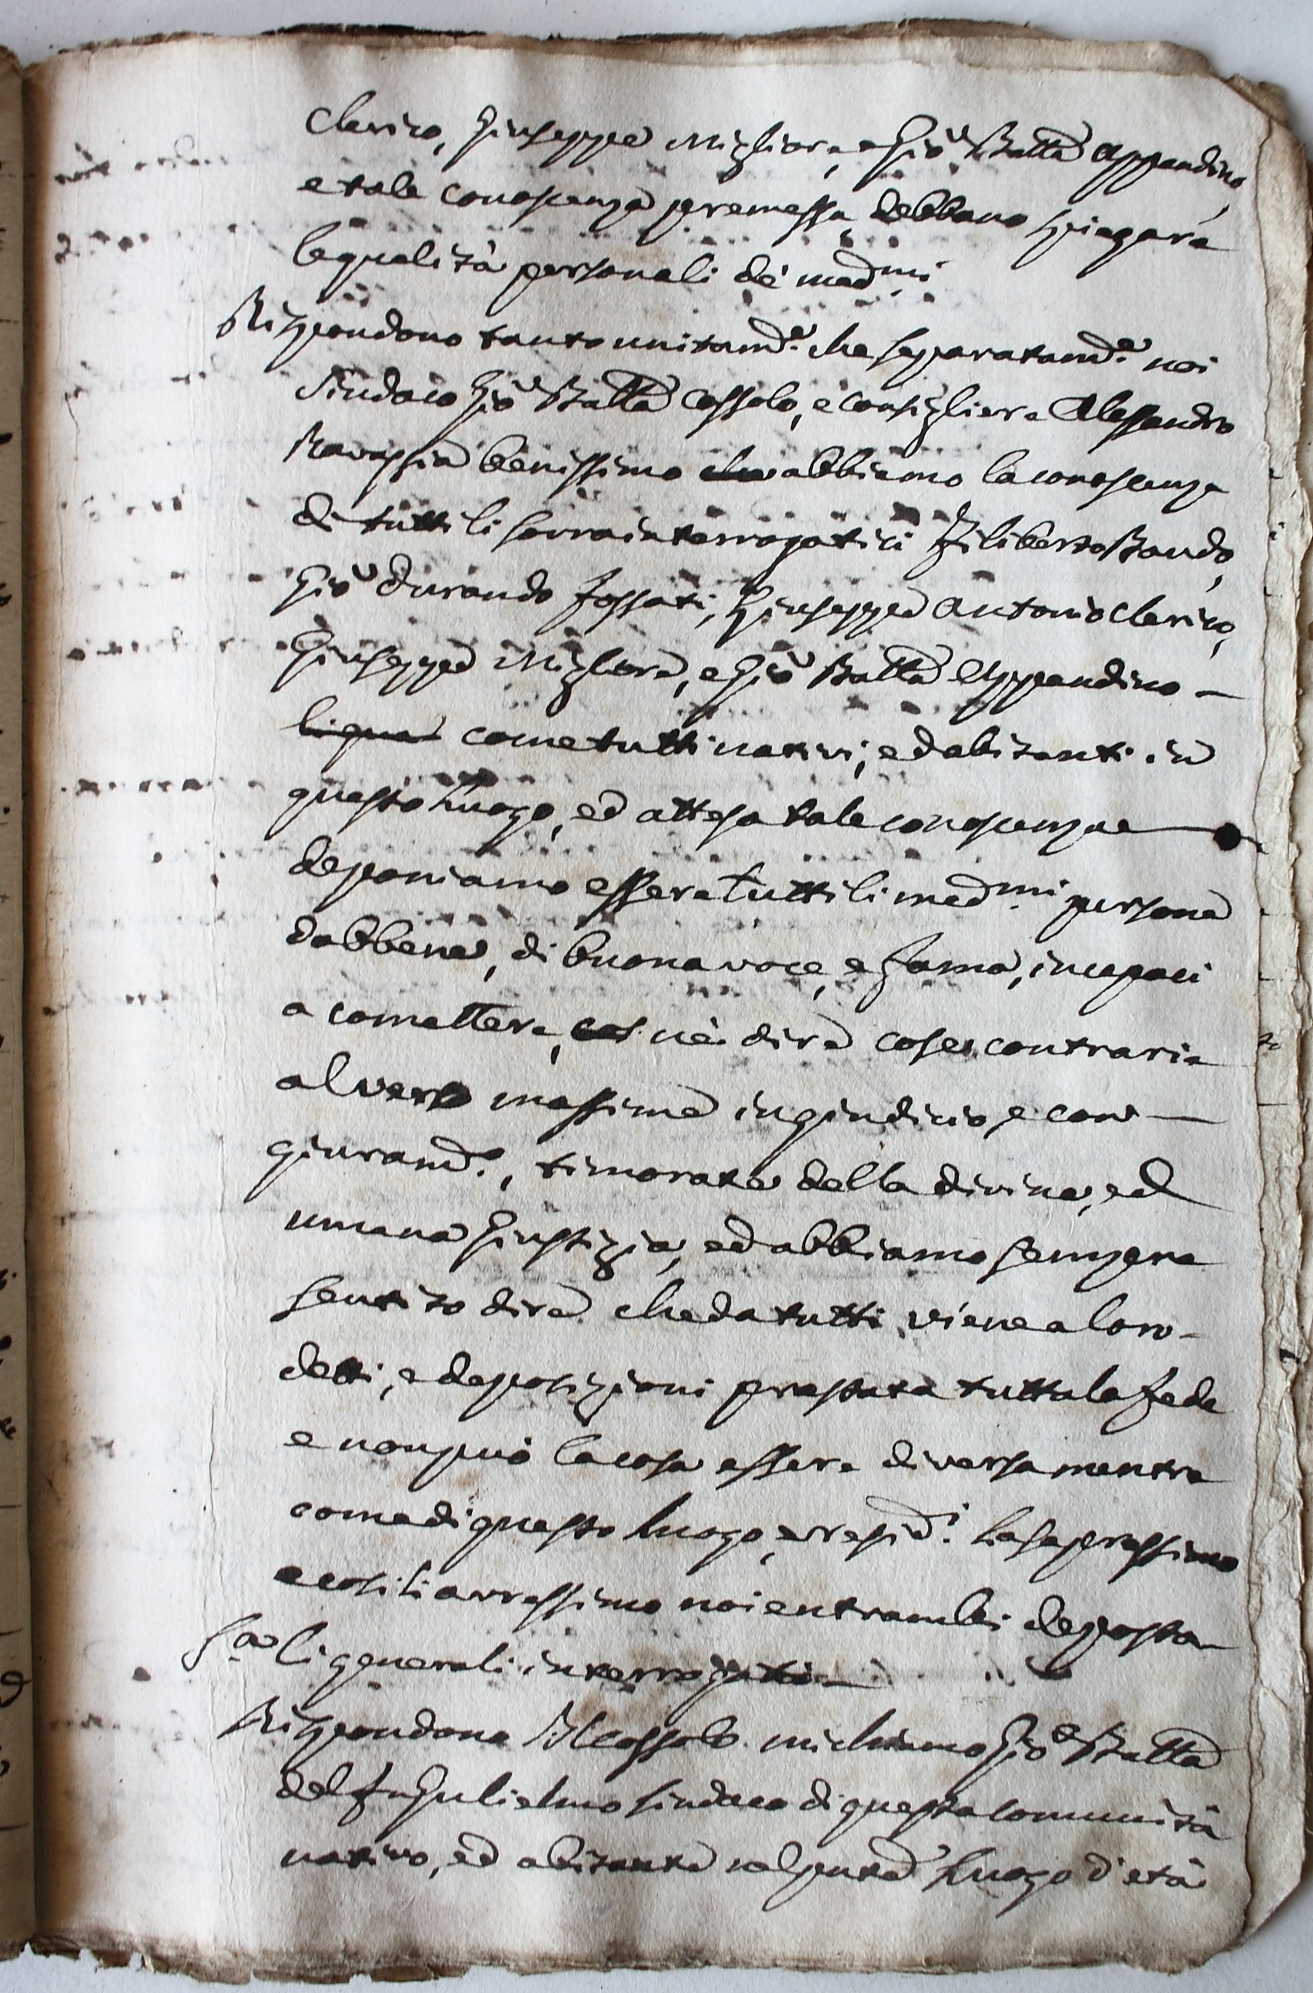 Clerico, Giuseppe Migliore, e Gio Batta Appendino,
e tale conoscenza premessa debbano spiegare
le qualità personali de' med.mi
Rispondono tanto unitam.e che separatam.e noi
Sindaco Gio Batta Cossolo, e Consigliere Alessandro
benissimo che abbiamo la conoscenza
di tutti li sovra interrogatici Filiberto Baudo,
Gio Durando Fossati, Giuseppe Antonio Clerico,
Giuseppe Migliore, e Gio Batta Appendino –
li quali come tutti nativi, ed abitanti in
questo luogo, ed attesa tale conoscenza
deponiamo essere tutti li med.mi persone
dabbene, di buona voce, e fama, incapaci
a comettere, cos né dire cose contrarie
al vero massime in giudicio e con –
giuram.o, timorate della divina, ed
umana Giustizia, ed abbiamo sempre
sentito dire che da tutti viene a loro
detti, e deposizioni prestata tutta la fede
e non può la cosa essere diversa mentre
come di questo luogo, e resid.i la sapressimo
e così li avressimo noi entrambi deposta –
S.a li generali interrogati –
Rispondono Il Cossolo mi chiamo Gio Batta
del fu Gulielmo sindaco di questa comunità
nativo, ed abitante nel pnte luogo d'età